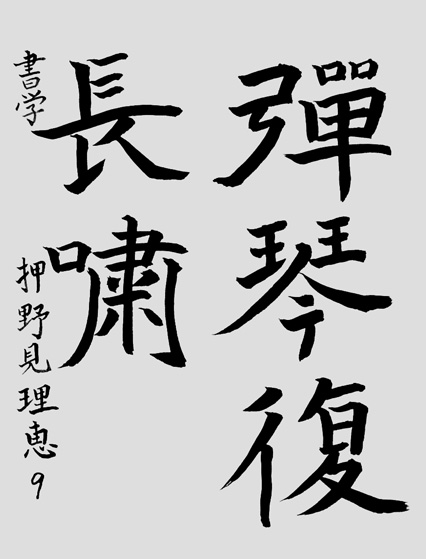 彈琴復
長嘯
書学 押野見理恵 9